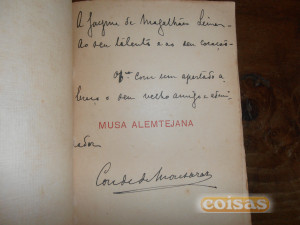 A Jayme de Magalhães Lima -
Ao seu talento e ao seu coração -
Off.ce com um apertado a
braço o seu velho amigo e admi
MUSA ALEMTEJANA
rador
Conde de Monsaraz
coisas